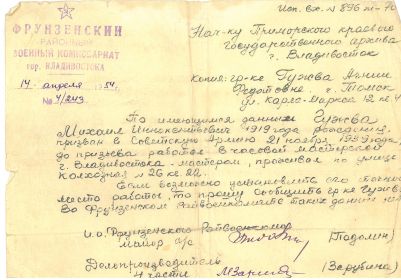 Исп. Вх. № 896
ФРУНЗЕНСКИЙ
РАЙОННЫЙ
ВОЕННЫЙ КОМИССАРИАТ
гор. ВЛАДИВОСТОКА
14 апреля 1954 г.
№ 4/243
Нач-ку Приморского краевого
Государственного архива
г. Владивосток
Копия: гр-ке Гужва
г. Томск
ул. Карла-Маркса 12 кв. 4
По имеющимся данным Гужва
Михаил Иннокентьевич 1919 года рождения,
призван в Советскую Армию 21 ноября 1939 года,
до призыва работал в часовой мастерской
г. Владивостока - мастером, проживал по улице
Колхозная № 26 кв. 22.
Если возможно установить его
место работы, то прошу сообщить гр-ке Гужва.
Во Фрунзенском Райвоенкомате таких данных нет
и.о. Фрунзенского Райвоенкома
майор а/с (Подолин)
Делопроизводитель
4 части (Зарубина)